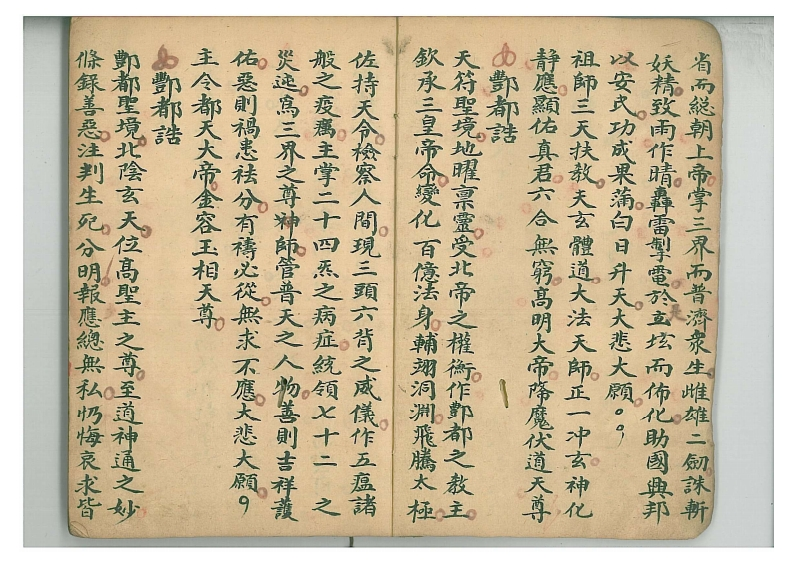 省而総朝上帝掌三界而普濟衆生雌雄二劔誅斬
妖精致雨作晴轟雷掣電於立垓而佈化助國興邦
以安民功成果滿白日升天大悲大願
祖師三天扶教天玄體道大法天師正一冲玄神化
静應顯佑真君六合無窮髙明大帝降魔伏道天尊
酆都誥
天符聖境地曜禀靈受北帝之權衡作酆都之教主
欽承三皇帝命變化百億法身輔翊洞淵飛騰太極
佐持天令檢察人間現三頭六背之威儀作五瘟諸
般之疫癘主掌二十四炁之病症統領七十二之
災迍為三界之尊神師管普天之人物善則吉祥護
佑惡則禍患祛分有禱必從無求不應大悲大願
主令都天大帝金容玉相天尊
酆都誥
酆都聖境北陰玄天位髙聖主之尊至道神通之妙
條錄善惡注判生死分明報應總無私忏悔哀求皆